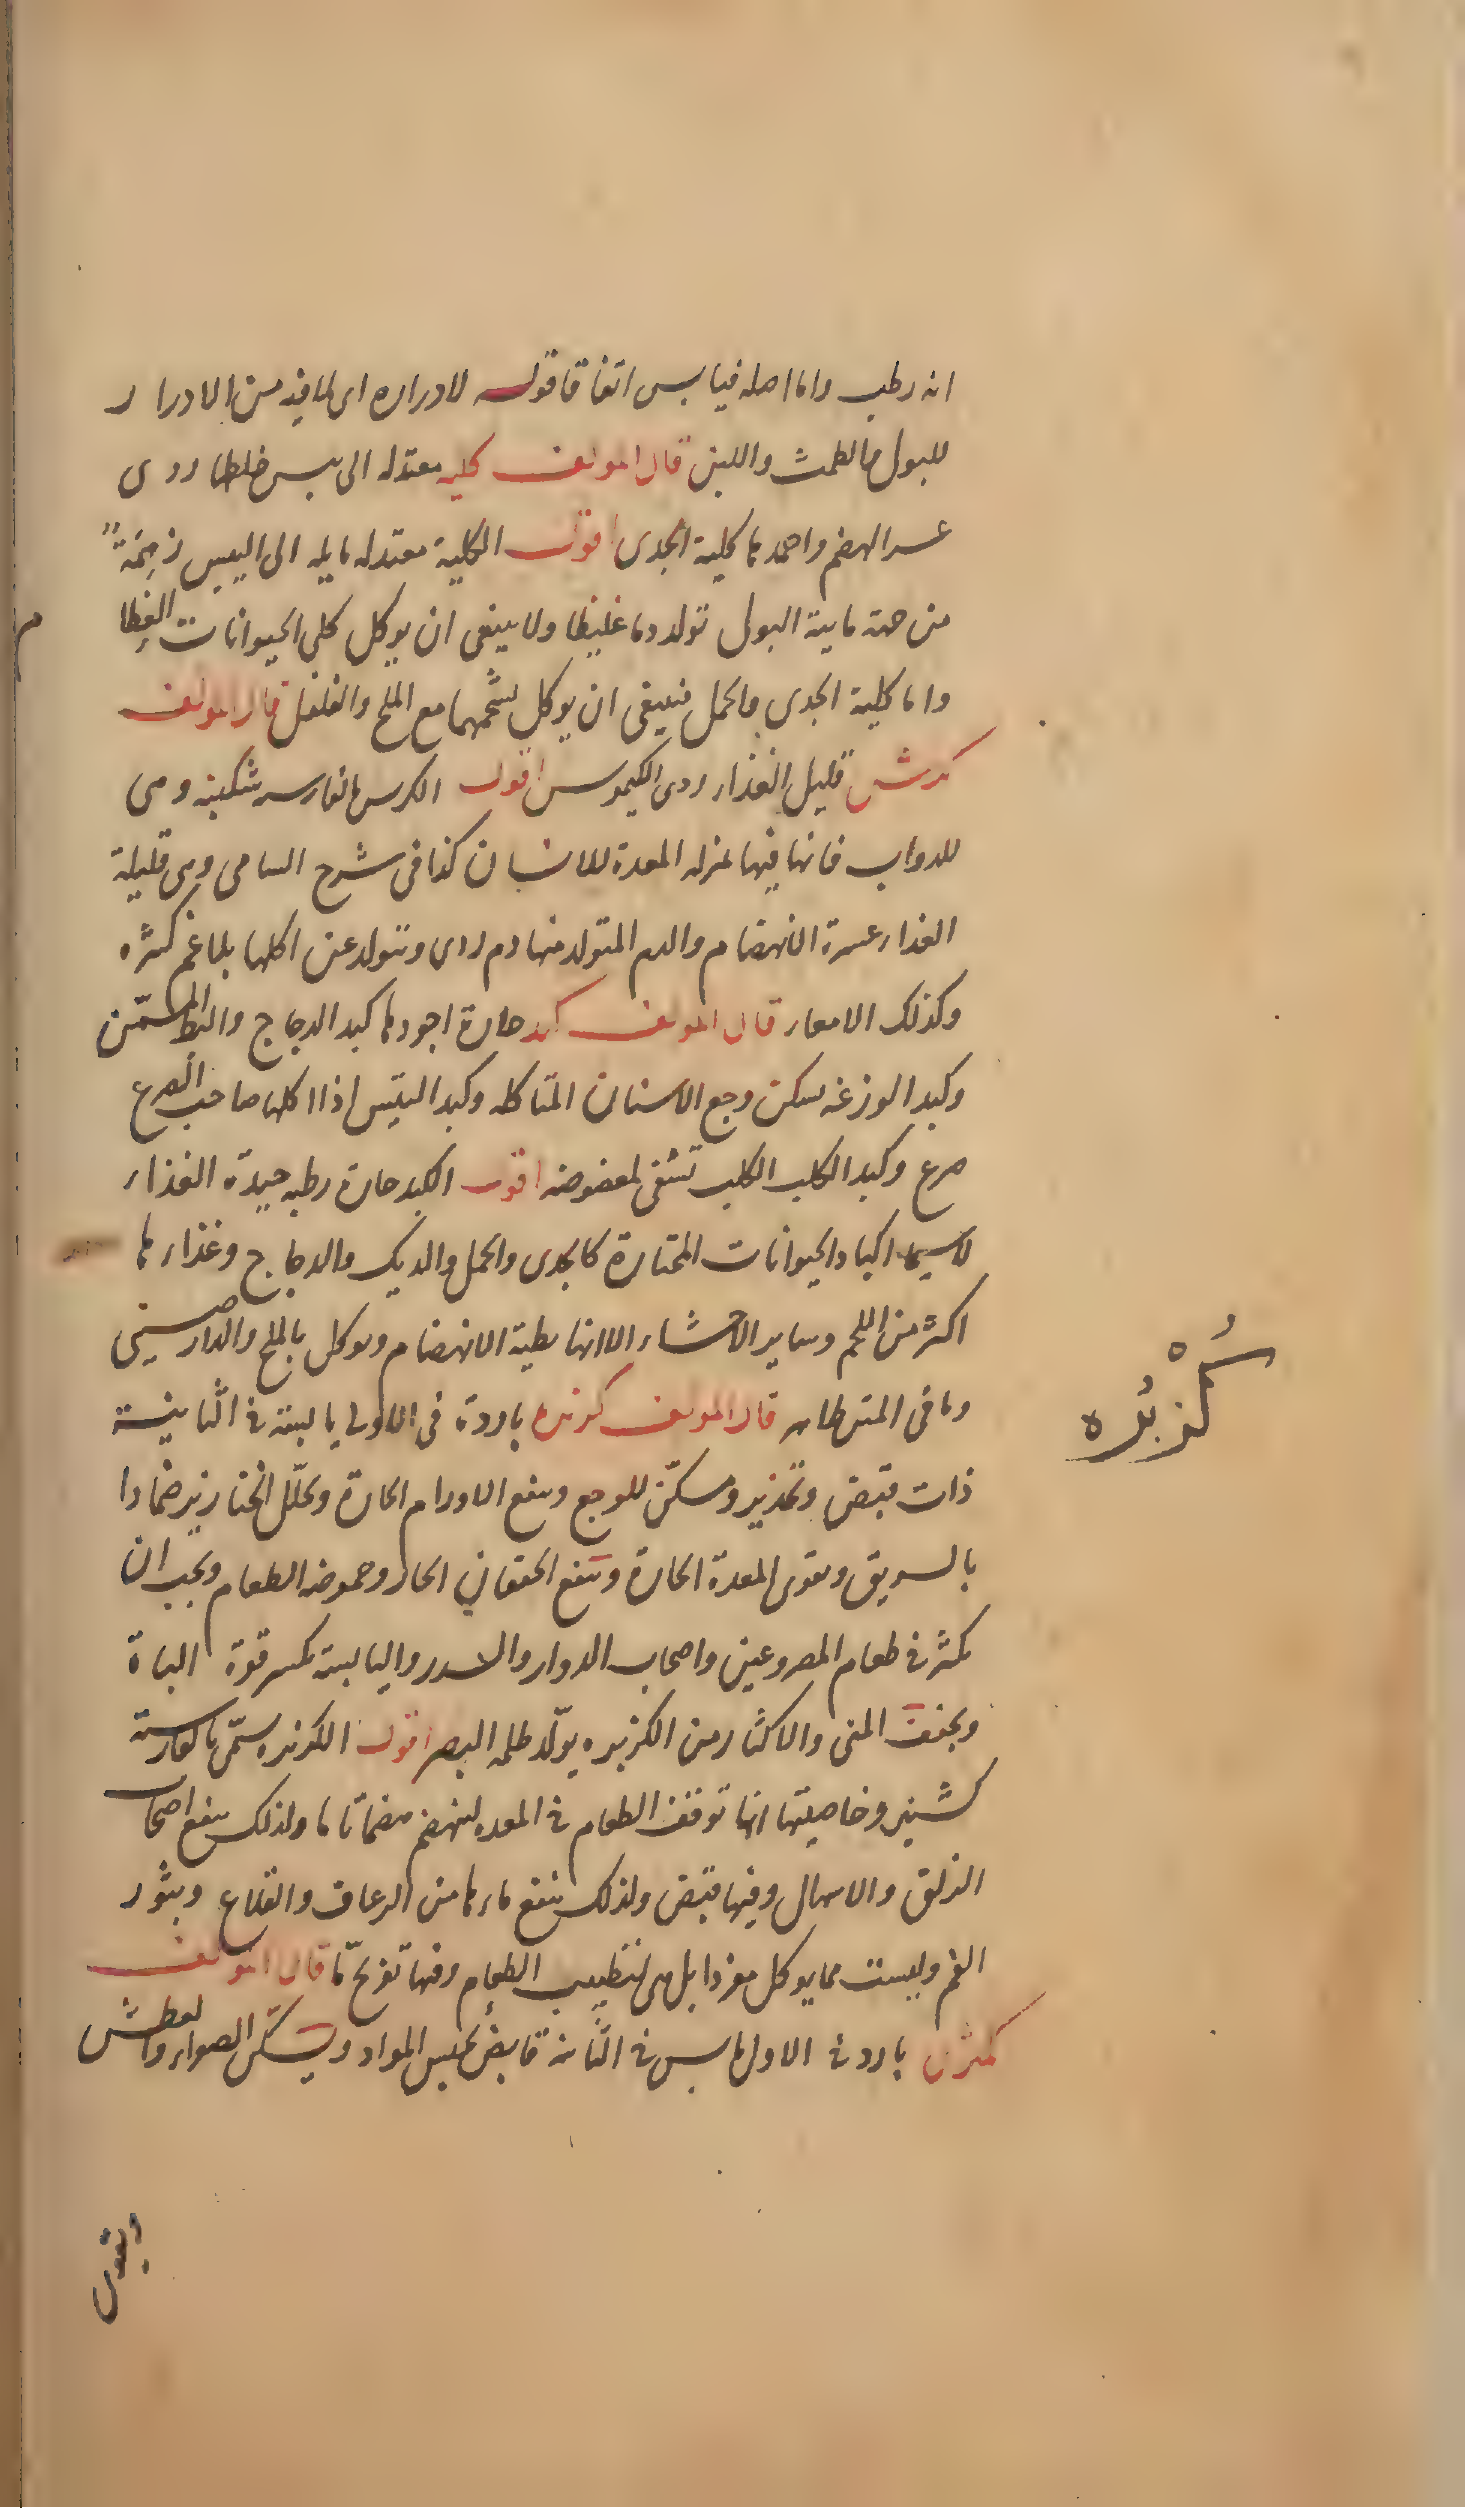 انه رطب واما اصله فيابس اتفاقا قوله لادراره اى لما فيه من الادرار
للبول والطمث واللبن قال المولف كليه معتدله الى يبس خلطها ردى
عسر الهضم واحمدها كلية الجدى اقول الكلية معتدله مايله الى اليبس زهمة
من جهة ماىية البول تولد دما غليظا ولا ينبغى ان يوكل كلى الحيوانات الغظا
م
واما كلية الجدى والحمل فينبغى ان يوكل بشحمهما مع الملح والفلفل قال المولف
كرش قليل الغذاء ردى الكيموس اقول الكرش بالفارسيه شكنبه وهى
للدواب فانها فيها بمنزله المعدة للانسان كذا فى شرح السامى وهى قليلة
الغذاء عسرة الانهضام والدم المتولد منها دم ردى ويتولد عن اكلها بلاغم كثيره
وكذلك الامعاء قال المولف كبد حارة اجودها كبد الدجاج والبط المسمّن
وكبد الوزغه يسكن وجع الاسنان المتاكله وكبد التيس اذا اكلها صاحب الصرع
صرع وكبد الكلب الكلب تشفى لمعضوضه اقول الكبد حارة رطبه جيدة الغذاء
لاسيما اكباد الحيوانات المختارة كالجدى والحمل والديك والدجاج وغذاءها
اكثر من اللحم وساير الاحشاء الا انها بطية الانهضام ويوكل بالملح والدارصينى
وما فى المتن ظاهر قال المولف كزبره باردة فى الاولى يابسة فى الثانية
ذات قبض وتخدير ومسكّن للوجع وينفع الاورام الحارة ويحلّل الخنازير ضمادا
بالسويق ويقوى المعدة الحارة وينفع الخفقان الحار وحموضه الطعام ويجب ان
يكثر فى طعام المصروعين واصحاب الدوار والسدر واليابسة يكسر قوة الباة
ويجفف المنى والاكثار من الكزبره يولّد ظلمه البصر اقول الكزبره يسمّى بالفارسية
كشنيز وخاصيتها انها توقف الطعام فى المعده لينهضم هضما تاما ولذلك ينفع اصحاب
الزلق والاسهال وفيها قبض ولذلك ينفع ماءها من الرعاف والقلاع وبثور
الفم وليست مما يوكل مفردا بل هى لتطييب الطعام وفيها تفريح ما قال المولف
كمثرى بارد فى الاول يابس فى الثانية قابض يحبس المواد ويسكن الصفراء والعطش
ويقوى
كُزْبُره